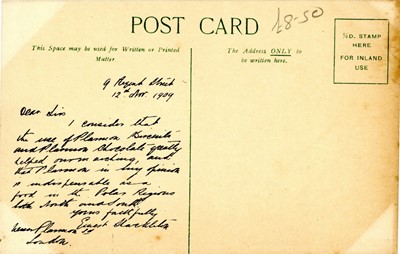 POST CARD
£8-50
This Space may be used for Written or Printed
Matter.
The Address ONLY to
be written here.
½D. STAMP
HERE
FOR INLAND
USE
9 Regent Street
12th Nov. 1909
Dear Sirs
I consider that
the use of Plasmon Biscuits
and Plasmon Chocolate greatly
helped our marching, and
that Plasmon in my opinion
is indispensable as a
food in the Polar Regions
both North and South
yours faithfully
Ernest Shackleton
Messrs Plasmon Ld
London.